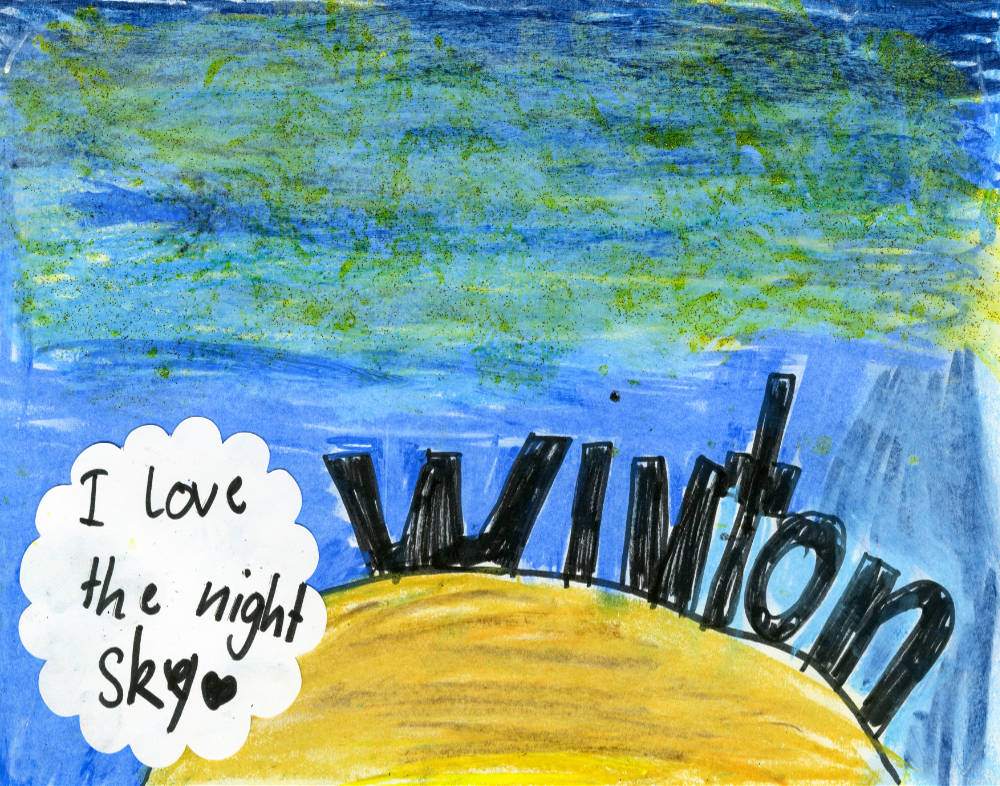 I love
the night
sky
winton